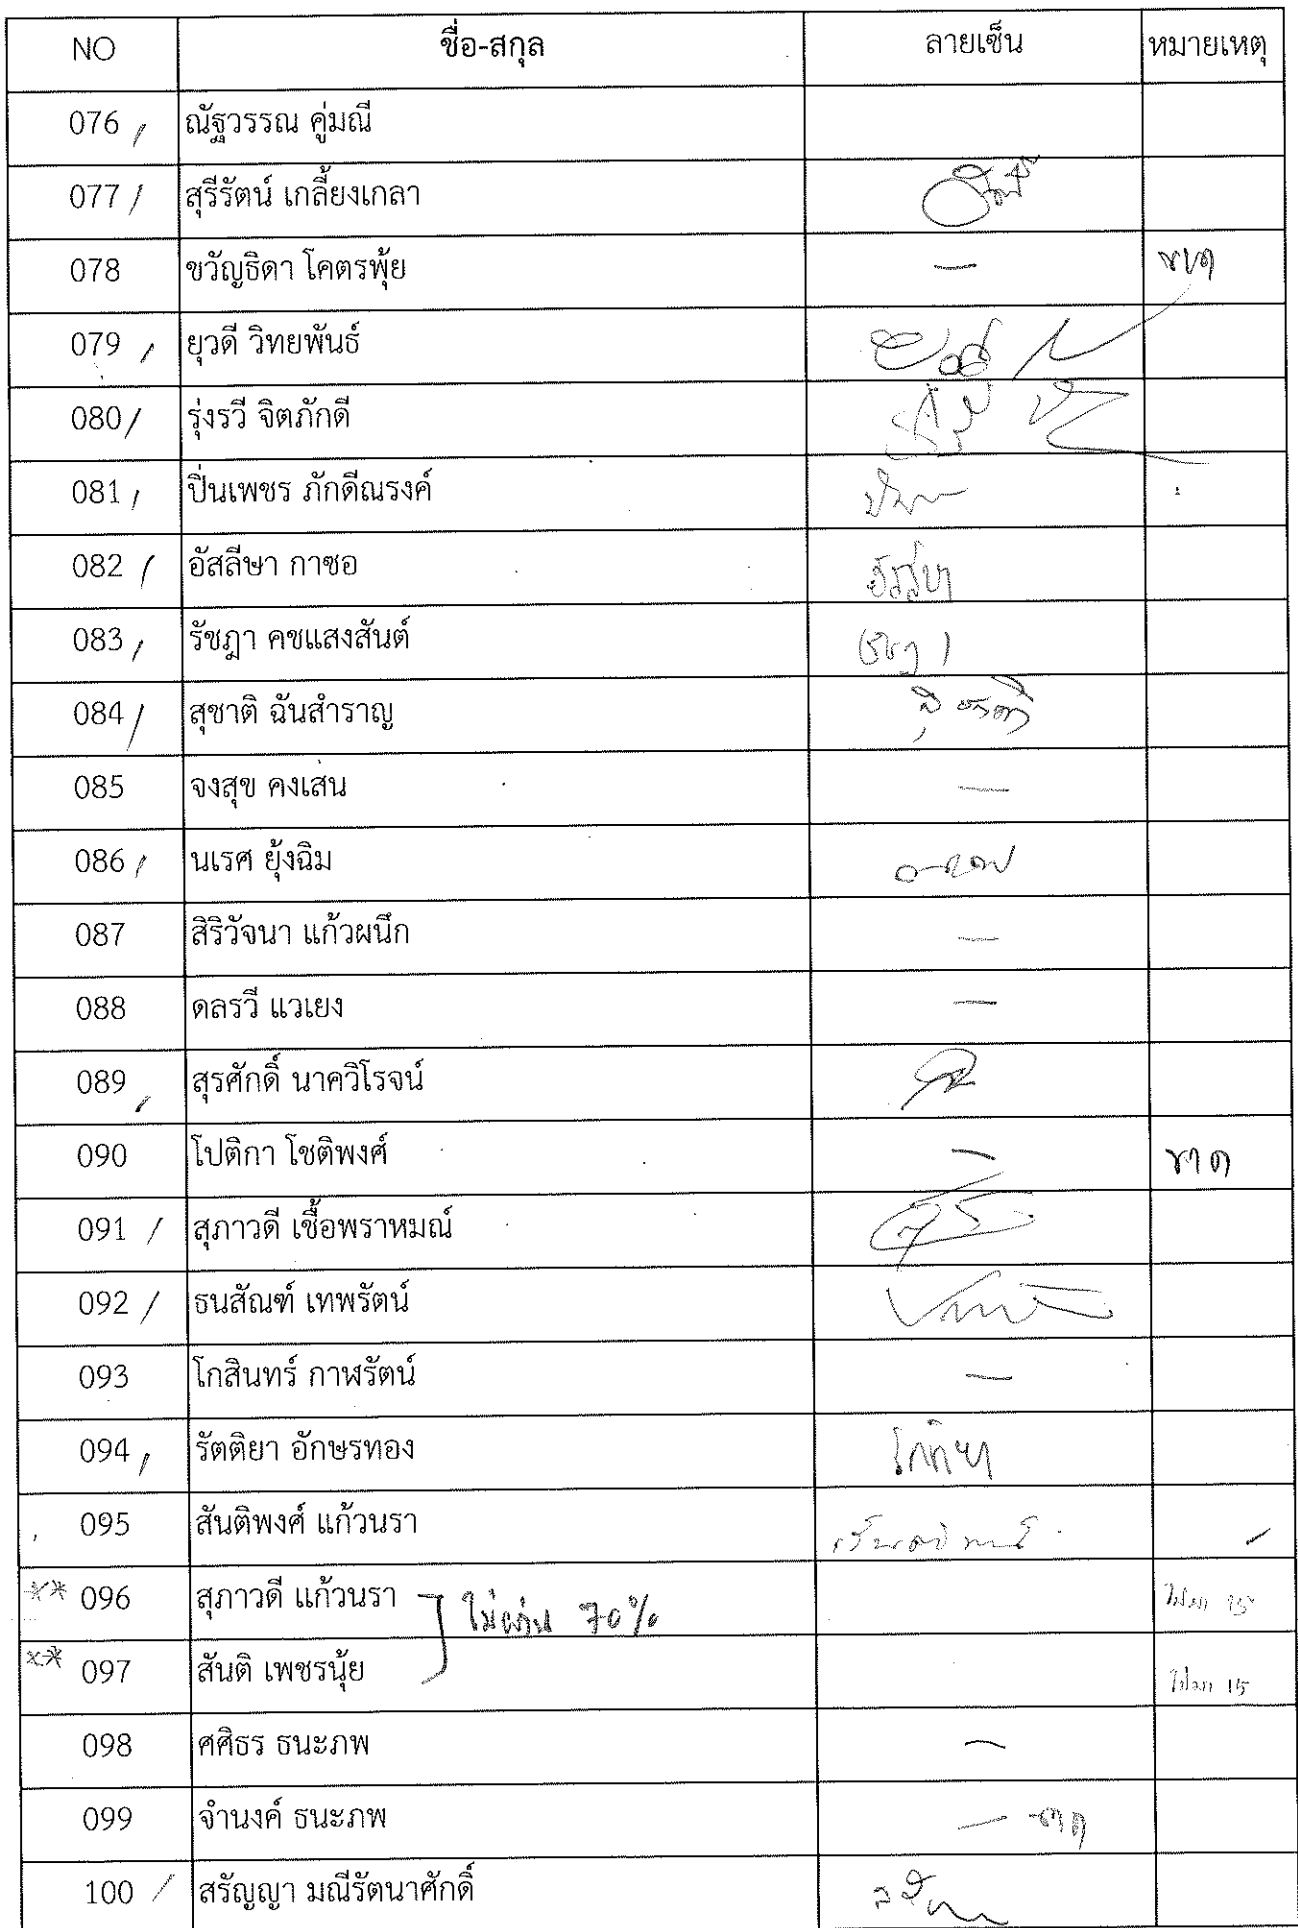 NO ชื่อ-สกุล ลายเซ็น หมายเหตุ
076 / ณัฐวรรณ คู่มณี
077 / สุรีรัตน์ เกลี้ยงเกลา
078 ขวัญธิดา โคตรพุ้ย — ขาด
079 / ยุวดี วิทยพันธ์
080 / รุ่งรวี จิตภักดี
081 / ปิ่นเพชร ภักดีณรงค์
082 / อัสลีษา กาซอ
083 / รัชฎา คชแสงสันต์
084 / สุชาติ ฉันสำราญ สุชาติ
085 จงสุข คงเสน —
086 / นเรศ ยุ้งฉิม
087 สิริวัจนา แก้วผนึก —
088 ดลรวี แวเยง —
089 / สุรศักดิ์ นาควิโรจน์
090 โปติกา โชติพงศ์ — ขาด
091 / สุภาวดี เชื้อพราหมณ์
092 / ธนสัณฑ์ เทพรัตน์
093 โกสินทร์ กาฬรัตน์ —
094 / รัตติยา อักษรทอง
095 สันติพงศ์ แก้วนรา /
** 096 สุภาวดี แก้วนรา ไม่ผ่าน 70% ไม่มา 15
** 097 สันติ เพชรนุ้ย ไม่มา 15
098 ศศิธร ธนะภพ —
099 จำนงค์ ธนะภพ — ขาด
100 / สรัญญา มณีรัตนาศักดิ์